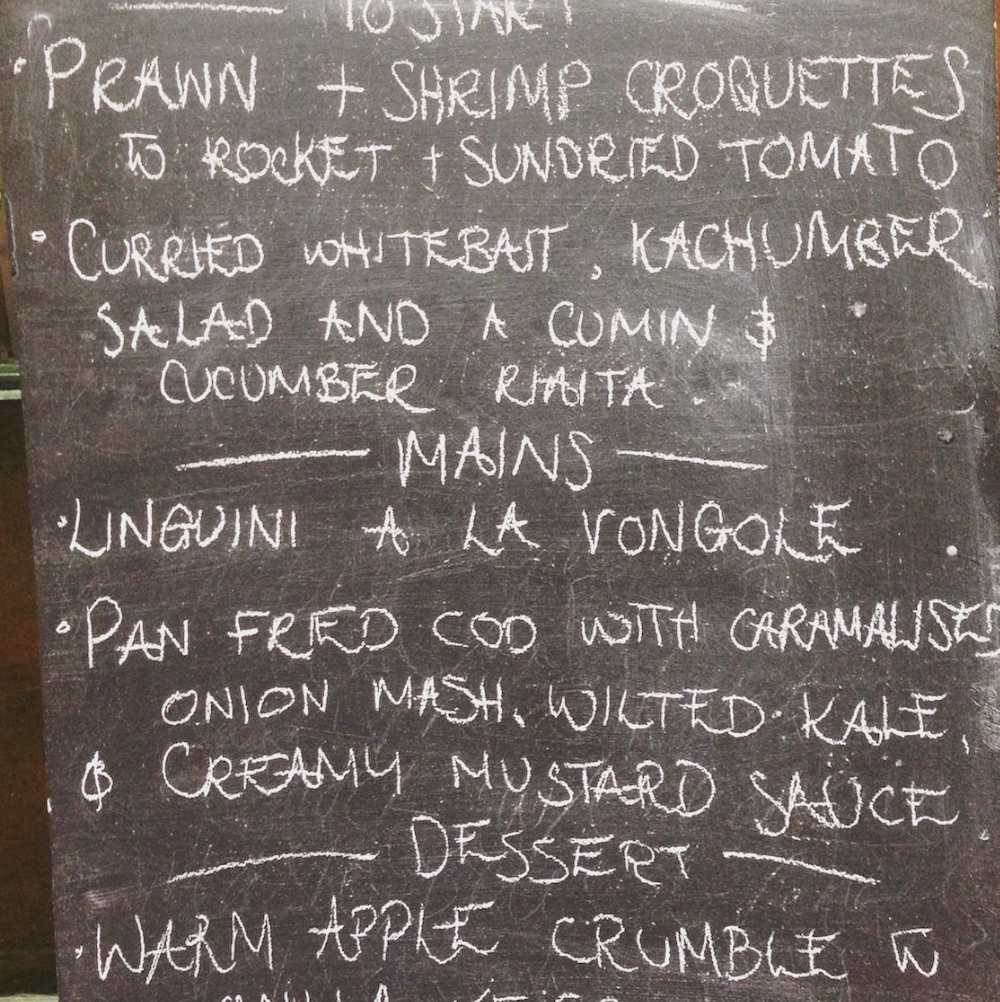 TO START
• PRAWN + SHRIMP CROQUETTES
W ROCKET + SUNDRIED TOMATO
• CURRIED WHITEBAIT, KACHUMBER
SALAD AND A CUMIN &
CUCUMBER RIAITA.
MAINS
• LINGUINI A LA VONGOLE
• PAN FRIED COD WITH CARAMALISED
ONION MASH, WILTED KALE,
& CREAMY MUSTARD SAUCE
DESSERT
• WARM APPLE CRUMBLE W